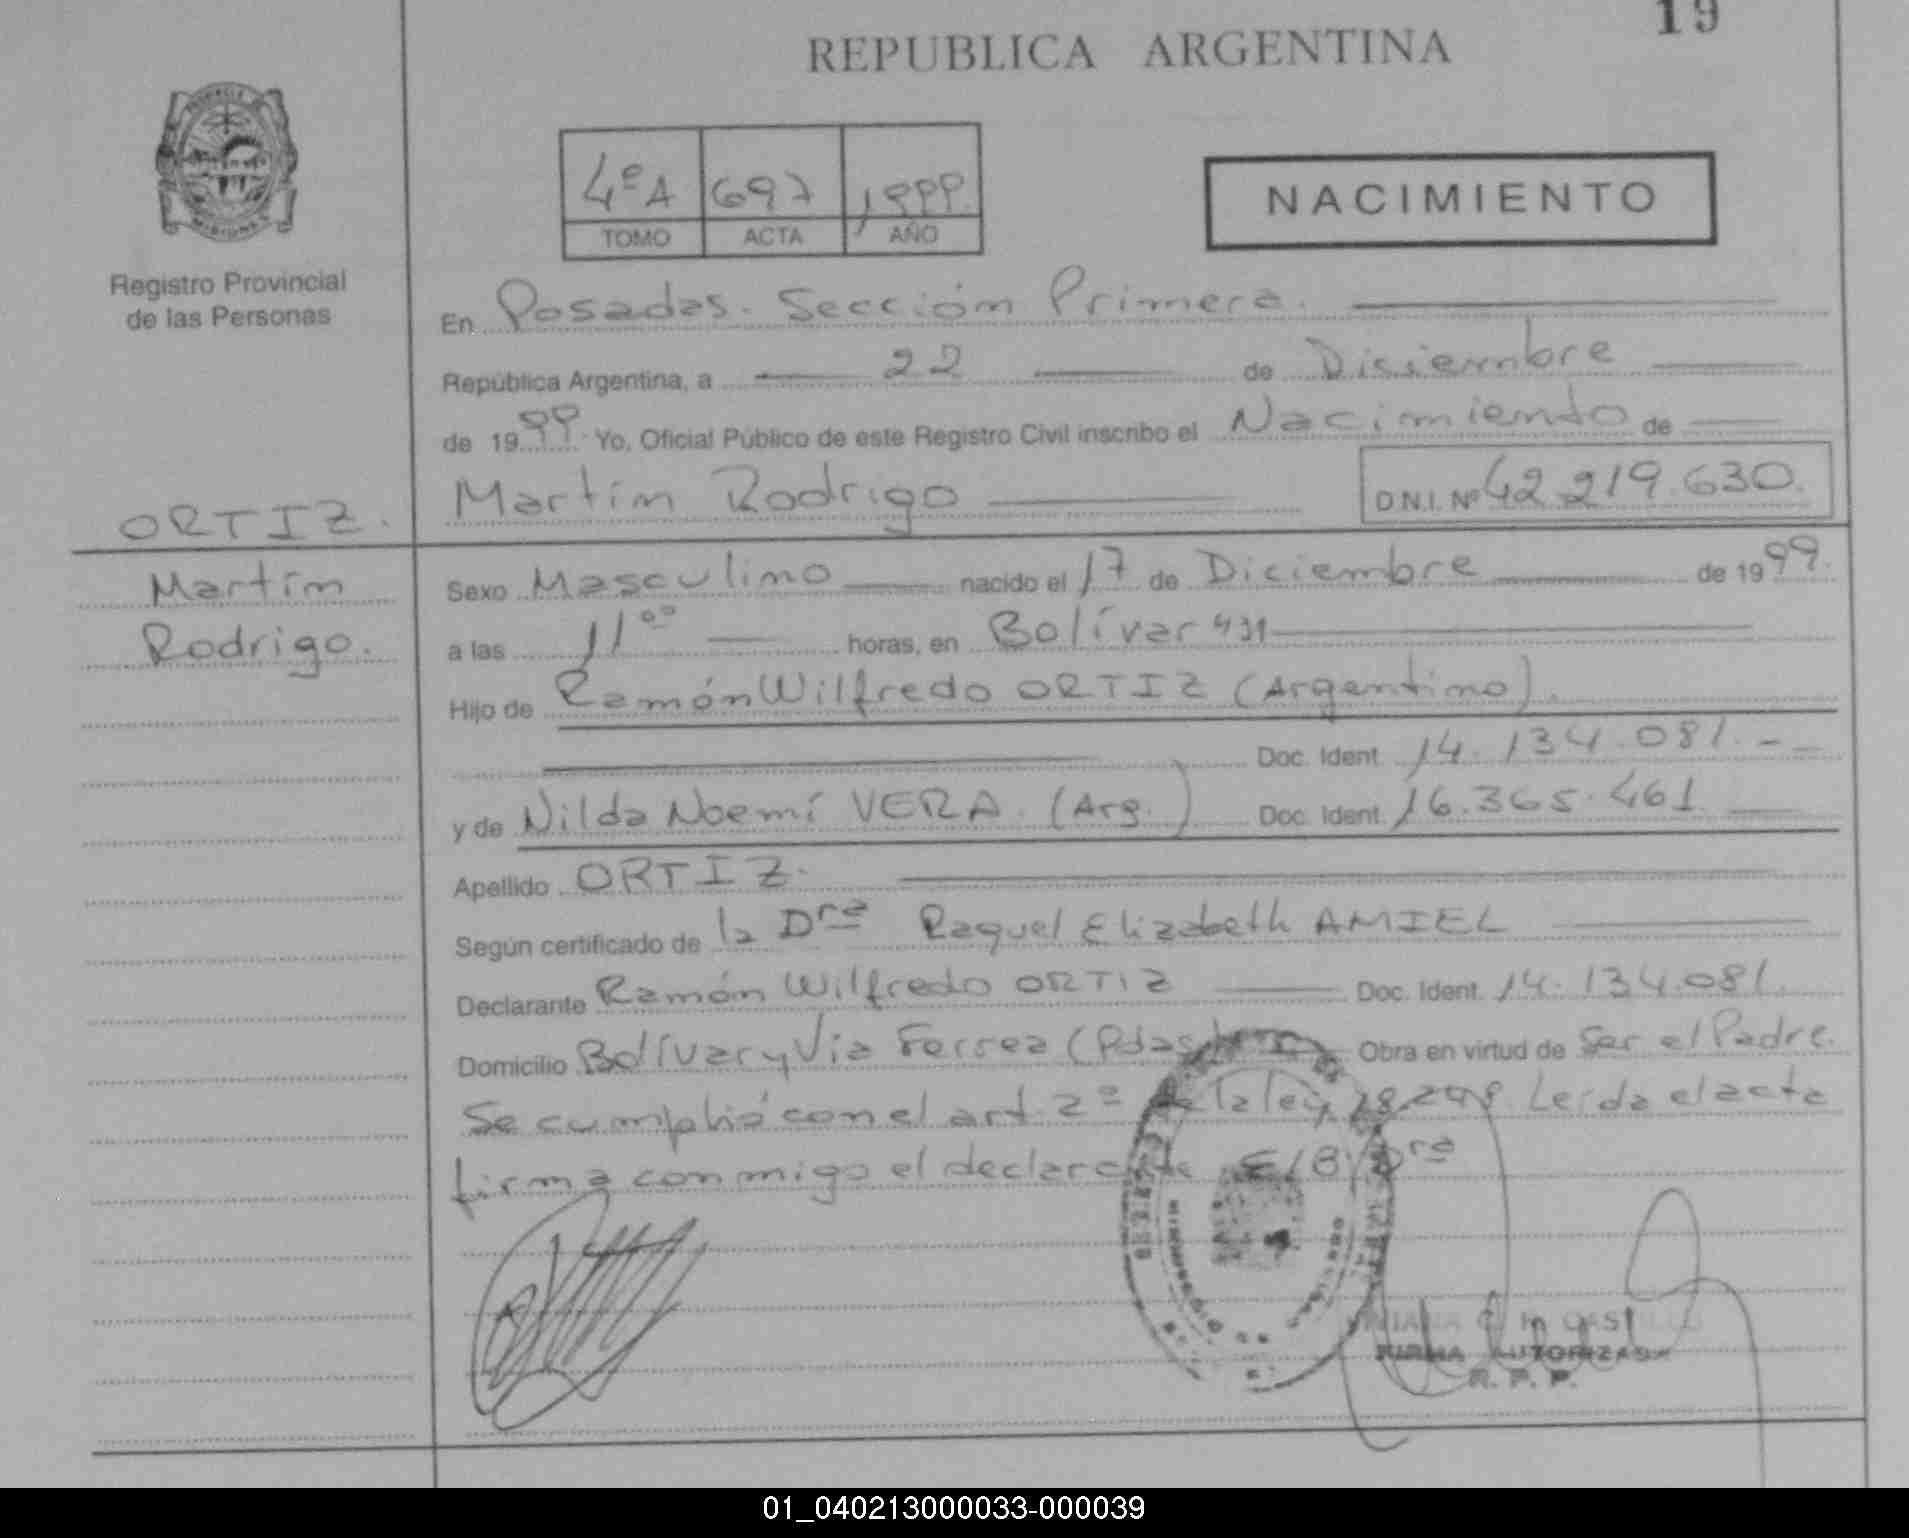 19
REPUBLICA ARGENTINA
PROVINCIA DE
MISIONES
Registro Provincial
de las Personas
4º A 697 1999.
TOMO ACTA AÑO
NACIMIENTO
En Posadas. Sección Primera.
República Argentina, a 22 de Disiembre
de 1999. Yo, Oficial Público de este Registro Civil inscribo el Nacimiento de
Martín Rodrigo D.N.I. Nº 42.219.630.
ORTIZ.
Martín
Rodrigo.
Sexo Masculino nacido el 17 de Diciembre de 1999.
a las 11ºº horas, en Bolívar 431
Hijo de Ramón Wilfredo ORTIZ (Argentino).
Doc. Ident. 14.134.081.--
y de Nilda Noemí VERA. (Arg.) Doc. Ident. 16.365.461
Apellido ORTIZ.
Según certificado de la Dra Raquel Elizabeth AMIEL
Declarante Ramón Wilfredo ORTIZ Doc. Ident. 14.134.081.
Domicilio Bolívar y Vía Ferrea (Pdas) Obra en virtud de Ser el Padre.
Se cumplió con el art. 2º de la ley 18248 Leída el acta
firma conmigo el declarante E/B: Dra
FIRMA AUTORIZADA
R. P. P.
01_040213000033-000039